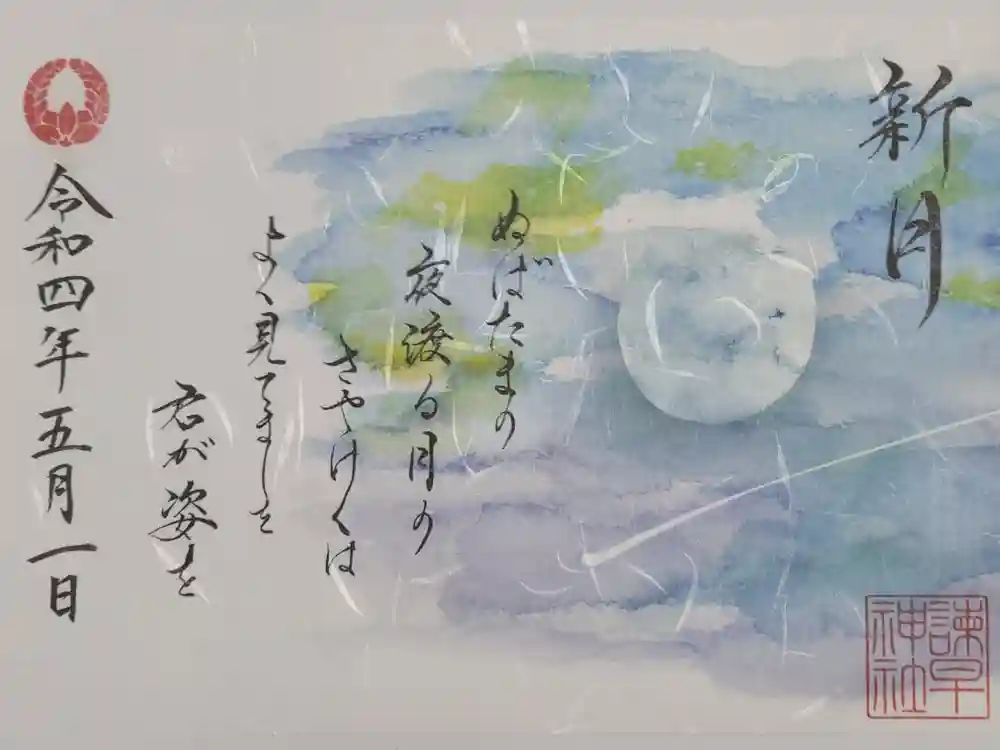 新月
ぬばたまの
夜渡る月の
さやけくは
よく見てましを
君が姿を
令和四年五月一日
諫早
神社